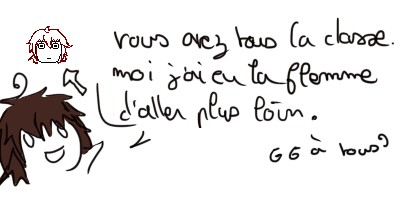 vous avez tous la classe.
moi j'ai eu la flemme
d'aller plus loin.
GG à tous